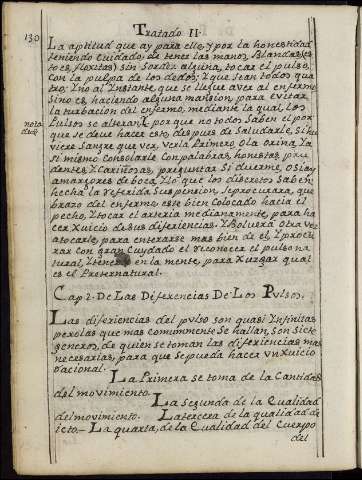 130
Tratado II.
La aptitud que ay para ello, y por la honestidad
teniendo Cuidado, de tener las manos, Blandas, (es-
to es, floxitas) sin Sordez alguna, tocar el pulso,
Con la pulpa de los dedos; Y que sean todos qua
tro; Y no al Instante, que se llegue a ver al enfermo
Sino es, haciendo alguna mansion, para evitar
la turbacion del enfermo, mediante la qual, los
nota Pulsos se alteran; Y por que no todos Saben el por
que se deve hacer esto, despues de Saludarle, Si hu
viere Sangre que ver, verla Primero, O la orina, Ya
si mismo Consolarle Con palabras, honestas, pru
dentes, Y Cariñosas, preguntar Si duerme, O Si ay
amargores de boca, Y lo que los discretos Saben:
hecha la referida Suspension, Se procurara, que
brazo del enfermo, este bien Colocado hacia el
pecho, Y tocar el arteria medianamente, para ha
cer Xuicio de sus diferencias. Y Bolverá Otra vez
atocarle, para enterarse mas bien de el, Y procu
rar con gran Cuydado el reconocer el pulso na
tural, Y tener en la mente, para Xuzgar qual
es el Preternatural.
Cap. 2. De Las Diferencias De Los Pulsos.
Las diferiencias del pulso son quasi Infinitas
pero las que mas comunmente Se hallan, Son Siete
generos, de quien se toman las diferiencias mas
necesarias, para que se pueda hacer un Xuicio
racional.
La Primera se toma de la Cantidad
del movimiento.
La Segunda de la Qualidad
del movimiento. La tercera de la qualidad de
icto. La quarta, de la Qualidad del Cuerpo
del